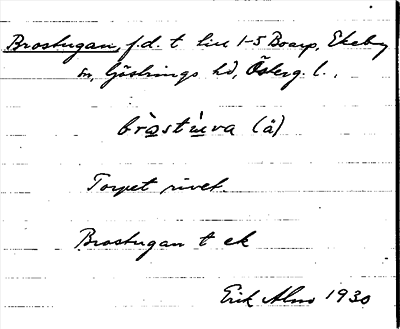 Brostugan, f.d. t liu 1-5 Boarp, Ekeby
sn, Göstrings hd, Österg. l.,
bròstùva (å)
Torpet rivet.
Brostugan t ek
Erik Alm 1930